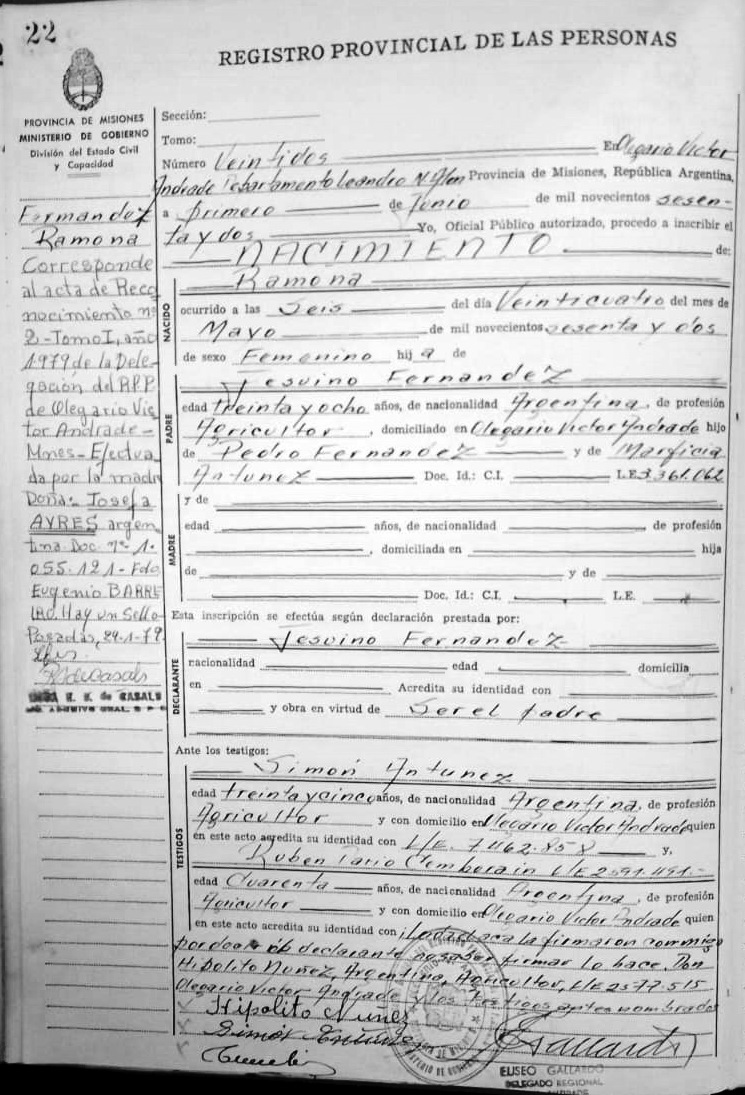 22
REGISTRO PROVINCIAL DE LAS PERSONAS
PROVINCIA DE MISIONES
MINISTERIO DE GOBIERNO
División del Estado Civil
y Capacidad
Fernandez
Ramona
Corresponde
al acta de Reco
nocimiento nº
2-Tomo I, año
1979 de la Dele-
gación del RPP.
de Olegario Vic
tor Andrade-
Mnes- Efectua
da por la madre
Doña: Josefa
AYRES argen
tina Doc. nº 1.
055.121- Fdo
Eugenio BARRE
Hay un Sello
Posadas, 24-1-79
R. de CASALS
Sección:
Tomo:
Número Veintidos En Olegario Victor
Andrade Departamento Leandro N. Alen Provincia de Misiones, República Argentina,
a primero de Junio de mil novecientos sesen-
ta y dos Yo, Oficial Público autorizado, procedo a inscribir el
NACIMIENTO de:
NACIDO
Ramona
ocurrido a las Seis del día Veinticuatro del mes de
Mayo de mil novecientos sesenta y dos
de sexo Femenino hij a de
PADRE
Jesuino Fernandez
edad treinta y ocho años, de nacionalidad Argentina, de profesión
Agricultor, domiciliado en Olegario Victor Andrade hijo
de Pedro Fernandez y de Marficia
Antunez Doc. Id.: C.I. L.E. 3.361.062
MADRE
y de
edad años, de nacionalidad , de profesión
, domiciliada en hija
de y de
Doc. Id.: C.I. L.E.
Esta inscripción se efectúa según declaración prestada por:
DECLARANTE
Jesuino Fernandez
nacionalidad edad domicilia
en Acredita su identidad con
y obra en virtud de Ser el padre
Ante los testigos:
TESTIGOS
Simón Antunez
edad treinta y cinco años, de nacionalidad Argentina, de profesión
Agricultor y con domicilio en Olegario Victor Andrade quien
en este acto acredita su identidad con L/E. 7.462.858 y,
Ruben Dario L/E 2591.491.-
edad Cuarenta años, de nacionalidad Argentina, de profesión
Agricultor y con domicilio en Olegario Victor Andrade quien
en este acto acredita su identidad con Leida el acta la firmaron conmigo
por decir el declarante no saber firmar lo hace Don
Hipolito Nuñez, Argentina, Agricultor, L/E 2577.515
Olegario Victor Andrade y los testigos antes nombrados
Hipolito Nunez
Simon Antunez
Gallardo
ELISEO GALLARDO
DELEGADO REGIONAL
ANDRADE